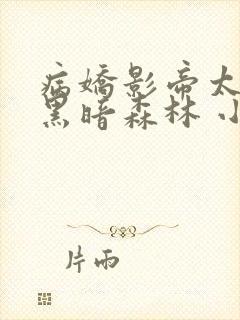 病嬌影帝太
黑暗森林 小
片雨